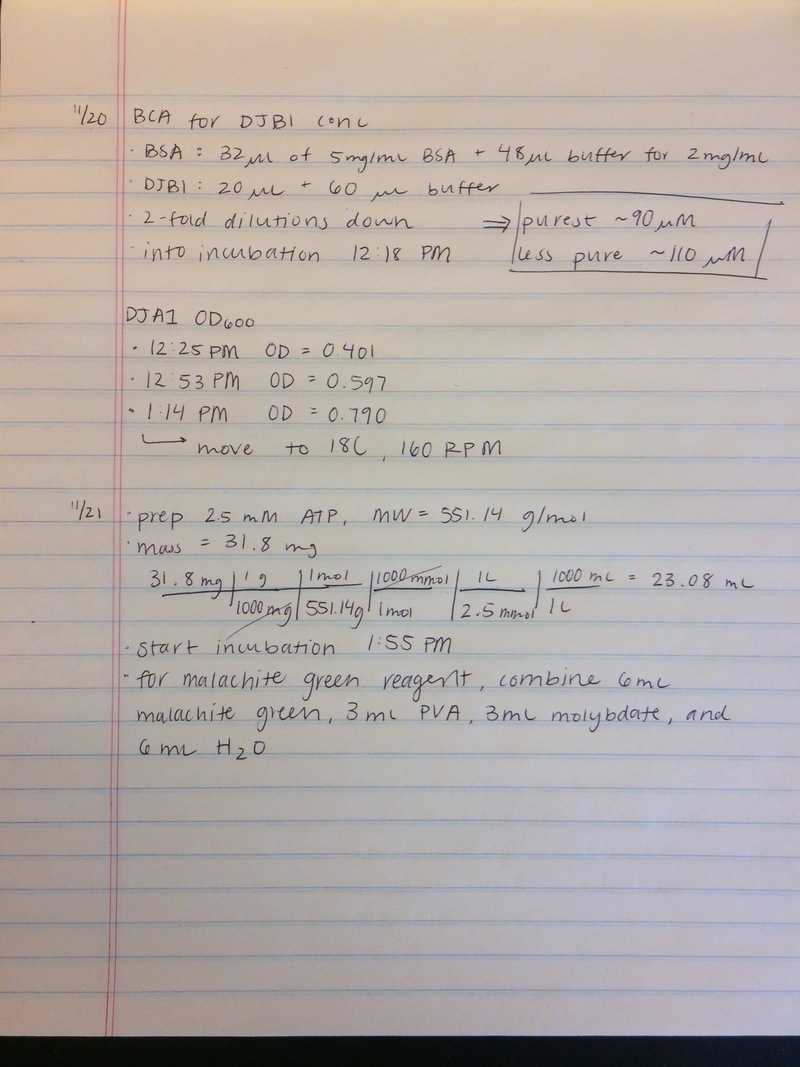 11/20 BCA for DJB1 conc
· BSA : 32 μL of 5mg/mL BSA + 48 μL buffer for 2mg/mL
· DJB1 : 20 μL + 60 μL buffer
· 2-fold dilutions down ⇒ purest ~90 μM
· into incubation 12:18 PM less pure ~110 μM
DJA1 OD600
· 12:25 PM OD = 0.401
· 12:53 PM OD = 0.597
· 1:14 PM OD = 0.790
↳ move to 18C, 160 RPM
11/21 · prep 2.5 mM ATP, MW = 551.14 g/mol
· mass = 31.8 mg
31.8 mg | 1 g | 1 mol | 1000 mmol | 1 L | 1000 mL = 23.08 mL
1000 mg | 551.14g | 1 mol | 2.5 mmol | 1 L
· start incubation 1:55 PM
· for malachite green reagent, combine 6 mL
malachite green, 3 mL PVA, 3 mL molybdate, and
6 mL H2O